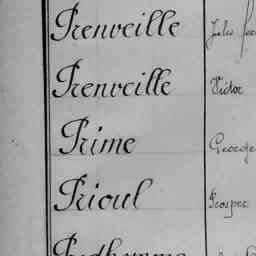 Prenveille Jules
Prenveille Victor
Prime George
Prioul Prosper